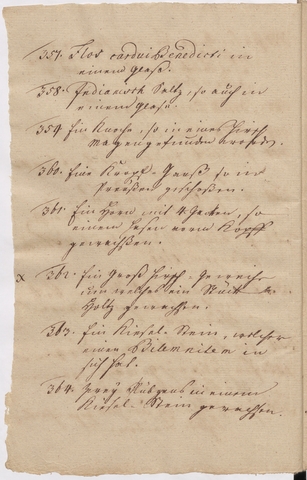 357. Flos cardui Benedicti in
einem Glaß.
358. Saltz, so auch in
einem Glaß.
359 Ein Knoche, so in eines Hirsch
Magen gefunden worden.
360. Eine Kropf-Ganß so in
Preußen geschoßen.
361. Ein Horn mit 4 Zacken, so
einem Hasen vorm Kopff
gewachßen.
x 362. Ein Groß Hirsch-Geweyhe
um welches ein Stück
Holtz gewachsen.
363. Ein Kiesel-Stein, welcher
einen in
sich hat.
364. Zwey in einem
Kiesel-Stein gewachsen.